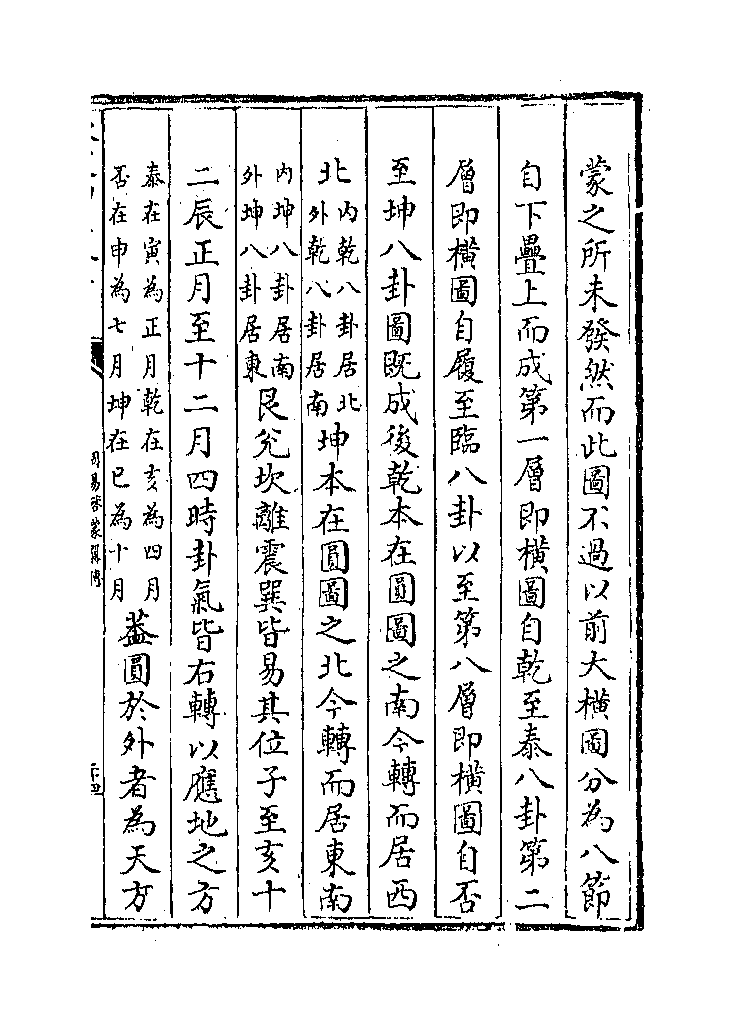 蒙之所未發然而此圖不過以前大橫圖分為八節
自下疊上而成第一層即橫圖自乾至泰八卦第二
層即橫圖自履至臨八卦以至第八層即橫圖自否
至坤八卦圖既成後乾本在圓圖之南今轉而居西
北内乾八卦居北外乾八卦居南坤本在圓圖之北今轉而居東南
内坤八卦居南外坤八卦居東艮兊坎離震巽皆易其位子至亥十
二辰正月至十二月四時卦氣皆右轉以應地之方
泰在寅為正月乾在亥為四月否在申為七月坤在巳為十月葢圓於外者為天方
周易啓蒙翼傳
二十四